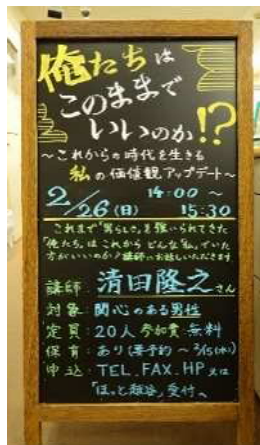 俺たちは
このままで
いいのか!?
～これからの時代を生きる
私の価値観アップデート～
2/26(日) 14:00～
15:30
これまで"男らしさ"を強いられてきた
「俺たち」はこれからどんな「私」でいた
方がいいのか?講師にお話しいただきます
講師:清田隆之さん
対象:関心のある男性
定員:20人 参加費:無料
保育:あり(要予約～2/15(水))
申込:TEL.FAX.HP又は
「ほっと越谷」受付へ